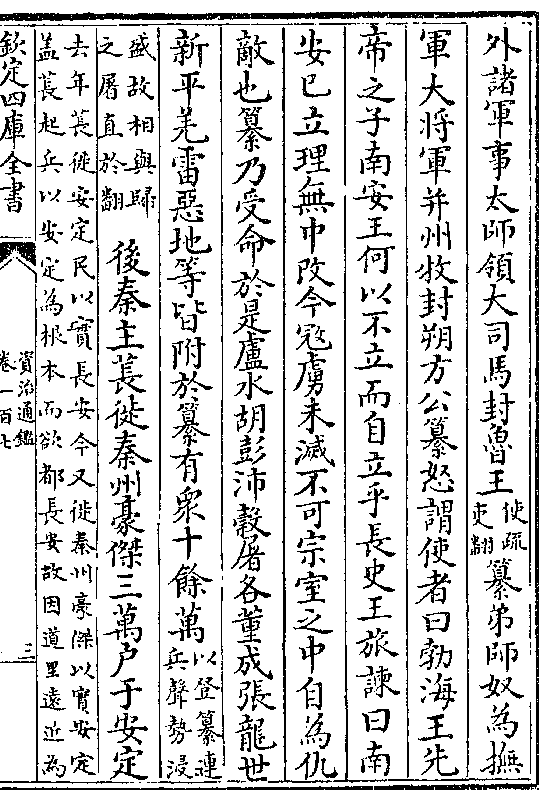 外諸軍事太師領大司馬封魯王使疏吏翻纂弟師奴為撫
軍大將軍并州牧封朔方公纂怒謂使者曰勃海王先
帝之子南安王何以不立而自立乎長史王旅諫曰南
安已立理無中改今寇虜未滅不可宗室之中自為仇
敵也纂乃受命於是盧水胡彭沛穀屠各董成張龍世
新平羌雷惡地等皆附於纂有衆十餘萬以登纂連兵聲勢浸
盛故相與歸之屠直於翻後秦主萇徙秦州豪傑三萬户于安定
去年萇徙安定民以實長安今又徙秦州豪傑以實安定
蓋萇起兵以安定為根本而欲都長安故因道里遠近為
欽定四庫全書
資治通鑑
卷一百七
三